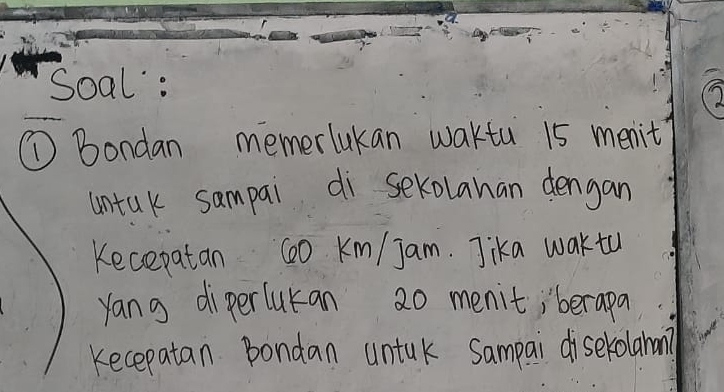 Soal :
① Bondan memerlukan waktu 15 menit
untuk sampai di sekolahan dengan
Kecepatan 60 Km/Jam. Jika waktu
yang diperlukan 20 menit, berapa
Kecepatan Bondan untuk Sampai disekolahan?
②